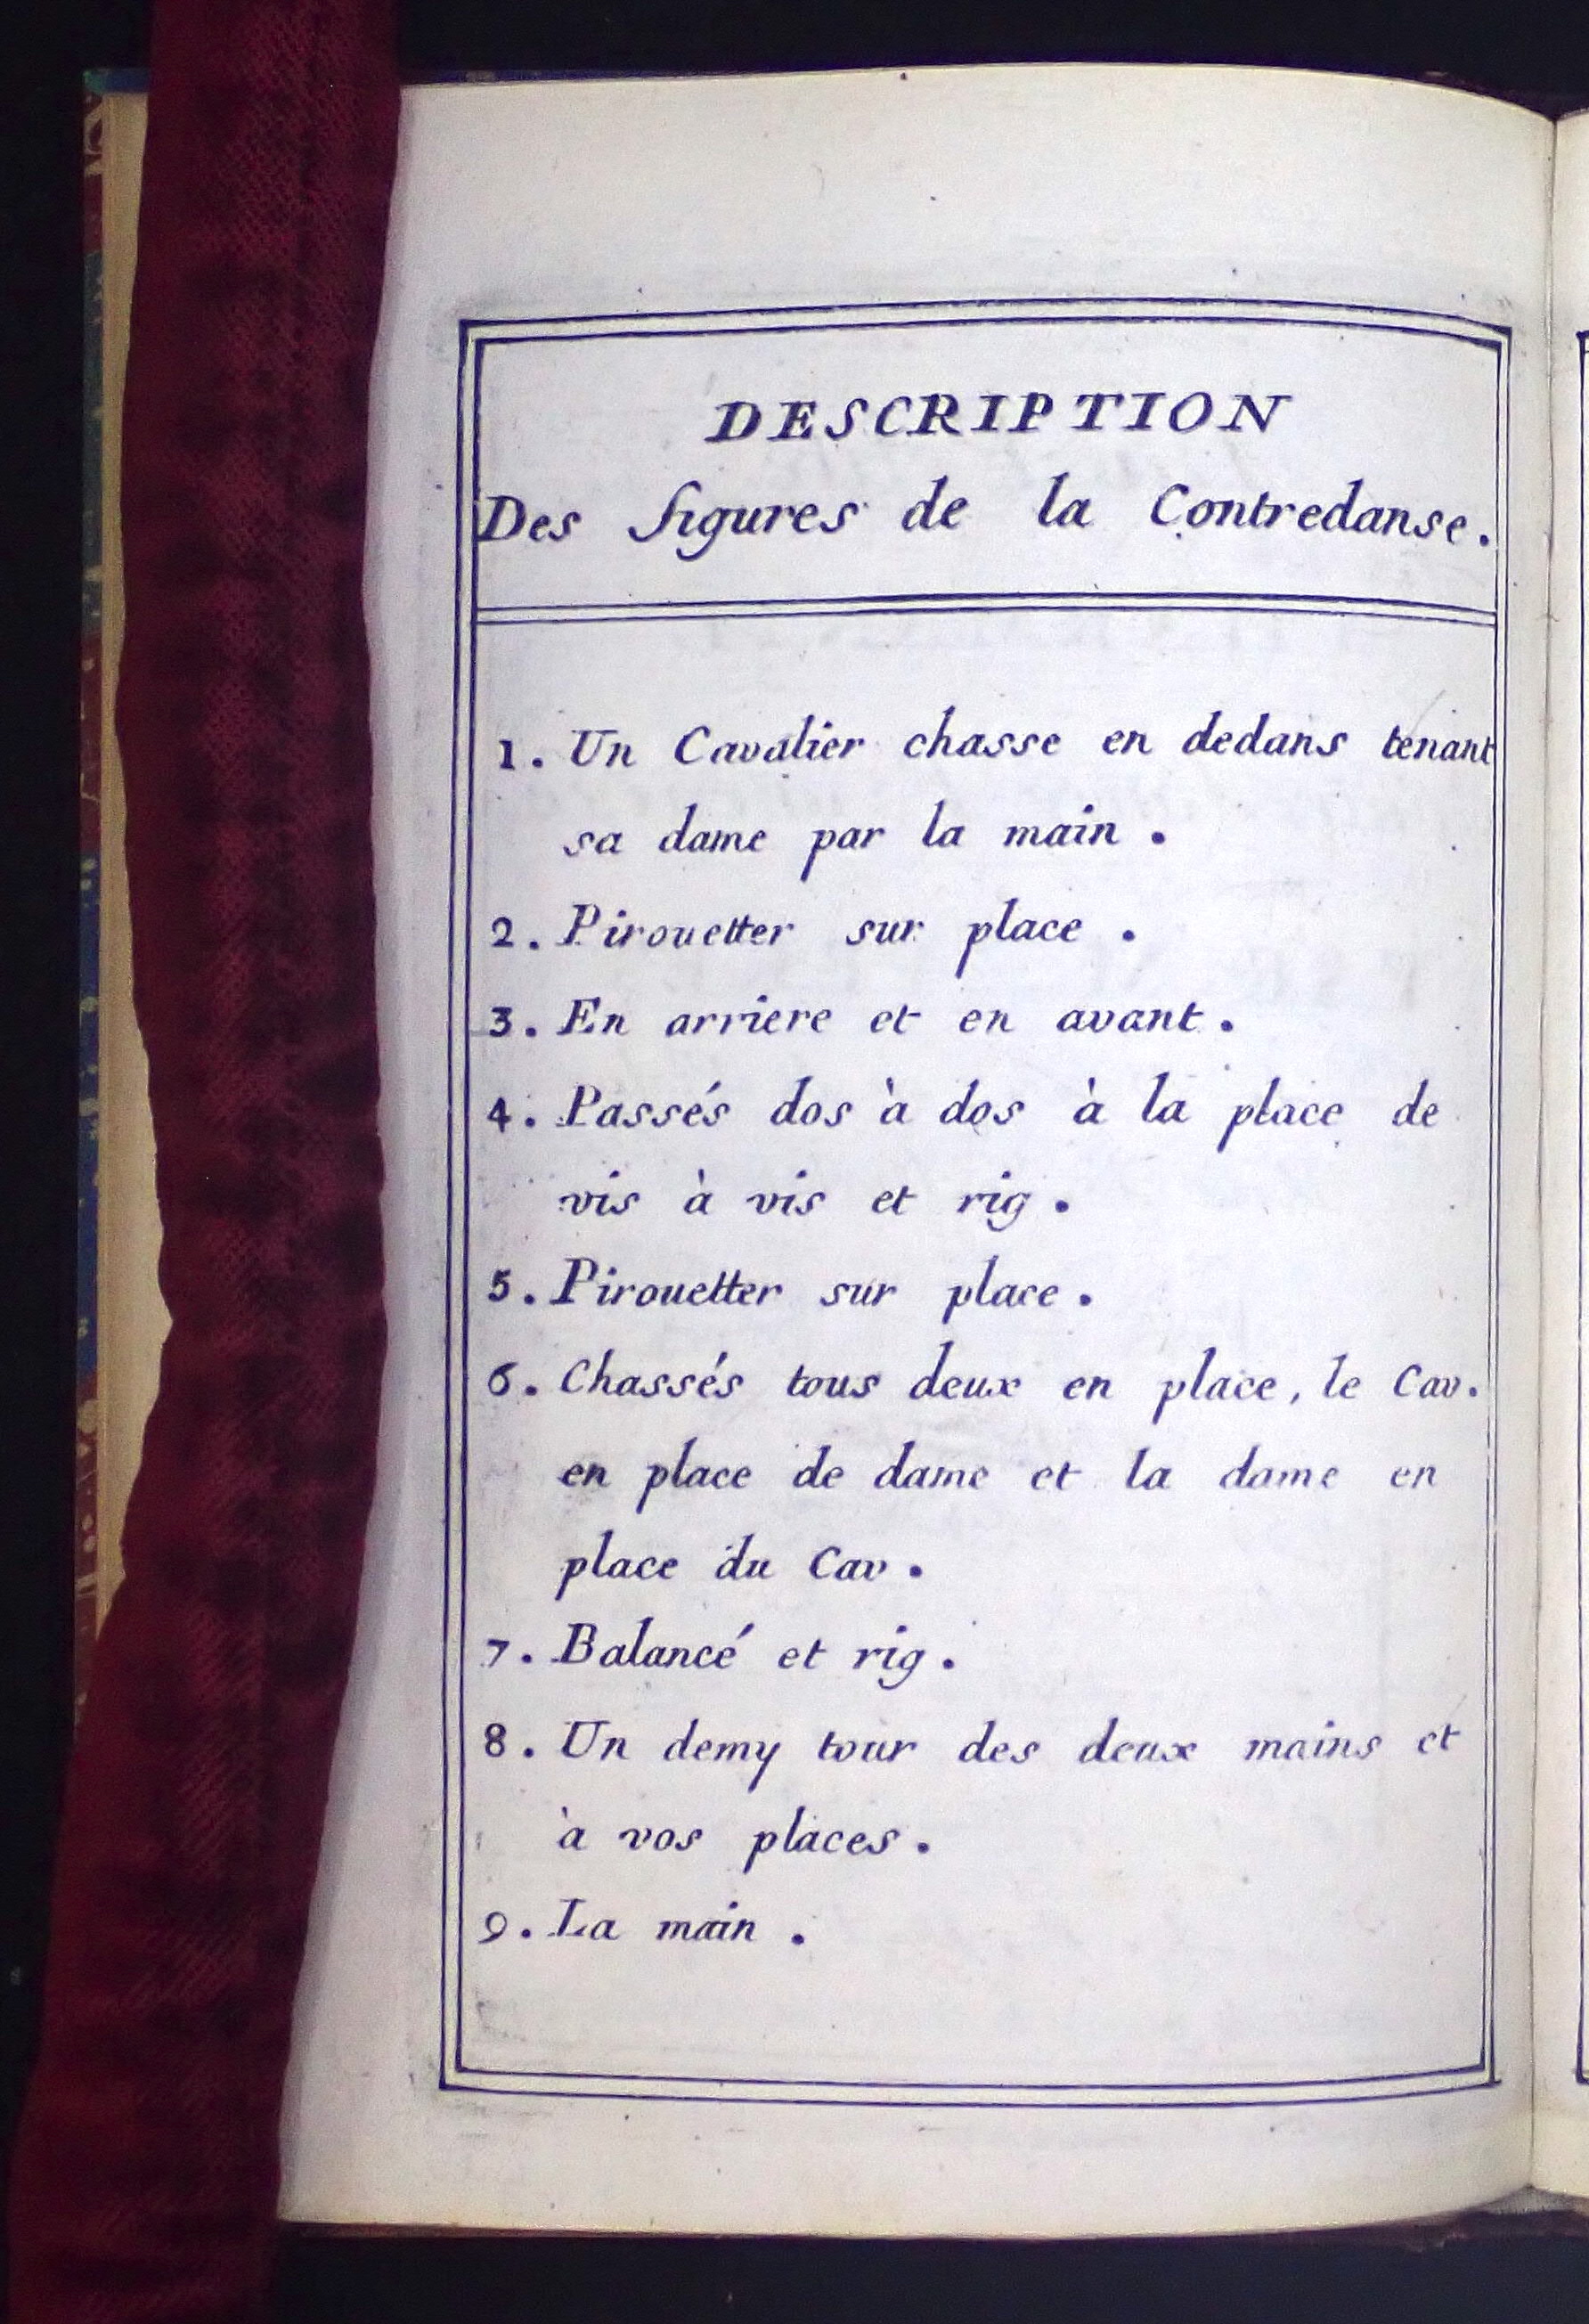 DESCRIPTION
Des figures de la Contredanse.
1. Un Cavalier chasse en dedans tenant
sa dame par la main.
2. Pirouetter sur place.
3. En arriere et en avant.
4. Passés dos à dos à la place de
vis à vis et rig.
5. Pirouetter sur place.
6. Chassés tous deux en place, le Cav.
en place de dame et la dame en
place du Cav.
7. Balancé et rig.
8. Un demy tour des deux mains et
à vos places.
9. La main.